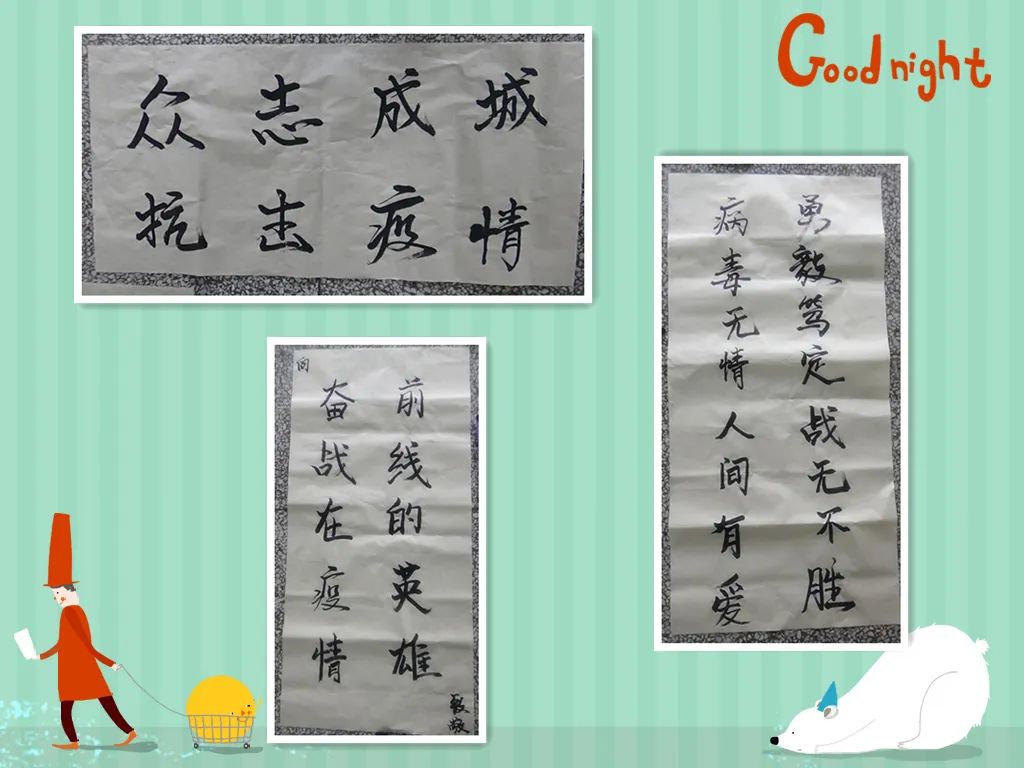 Good night
众志成城
抗击疫情
向
奋战在疫情
前线的英雄
致敬
病毒无情人间有爱
勇毅笃定战无不胜